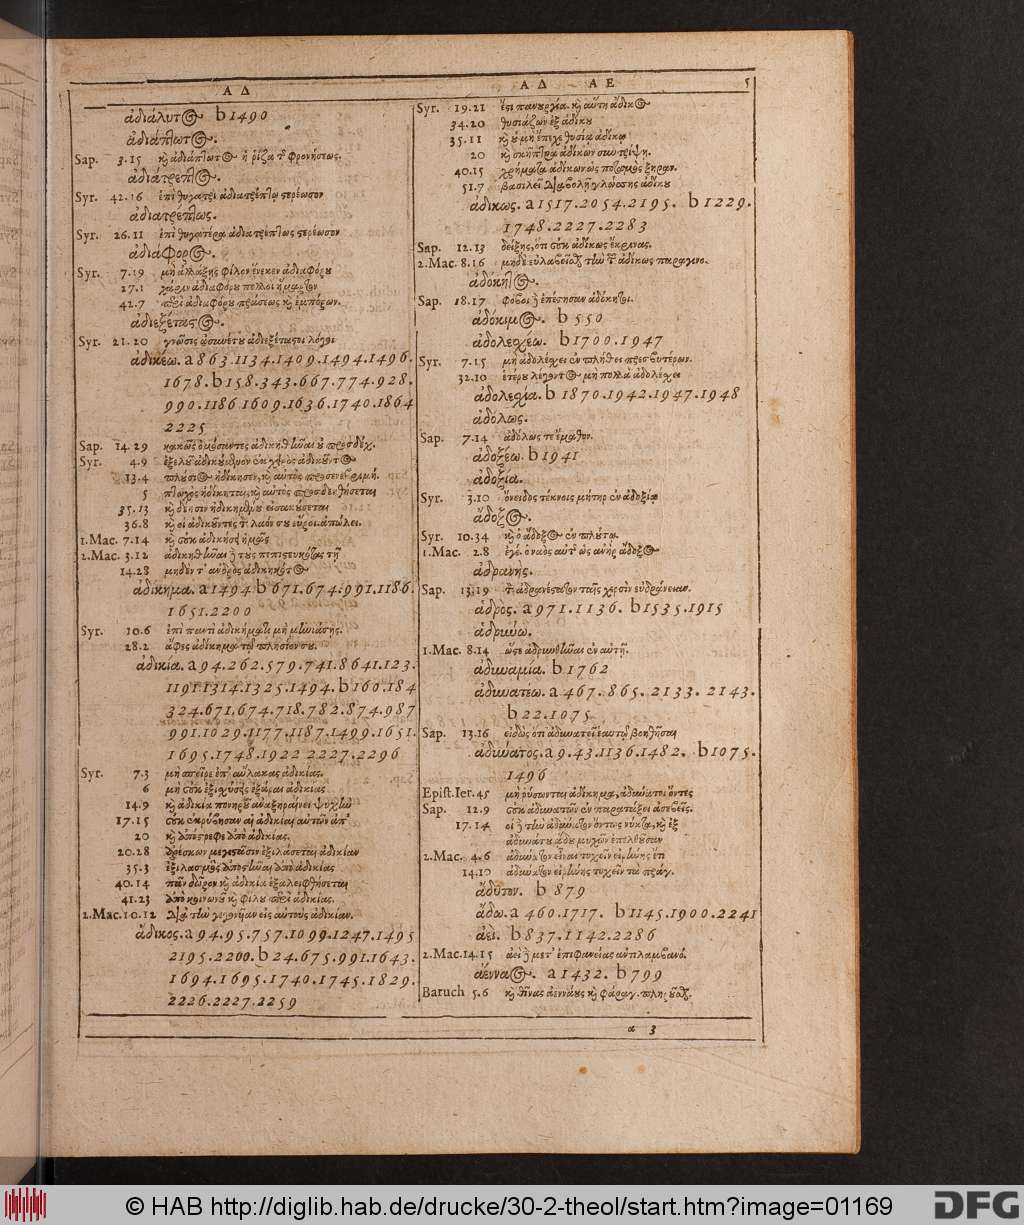 Α Δ
ἀδιάλυτος b 1490
ἀδιάπτωτος.
Sap. 3.15 καὶ ἀδιάπτωτος ἡ ῥίζα τῆς φρονήσεως.
ἀδιάτρεπτος.
Syr. 42.16 ἐπὶ θυγατρὶ ἀδιατρέπτῳ στερέωσον
ἀδιατρέπτως.
Syr. 26.11 ἐπὶ θυγατέρα ἀδιατρέπτως στερέωσον
ἀδιάφορος.
Syr. 7.19 μὴ ἀλλάξῃς φίλον ἕνεκεν ἀδιαφόρου
27.1 χάριν ἀδιαφόρου πολλοὶ ἥμαρτον
42.7 περὶ ἀδιαφόρου πράσεως καὶ ἐμπόρων.
ἀδιεξέταστος.
Syr. 21.20 γνῶσις ἀσυνέτου ἀδιεξέταστοι λόγοι
ἀδικέω. a 863.1134.1409.1494.1496.
1678. b 158.343.667.774.928.
990.1186 1609.1636.1740.1864
2225
Sap. 14.29 κακῶς ὀμόσαντες ἀδικηθῆναι οὐ προσδέχ.
Syr. 4.9 ἐξελοῦ ἀδικούμενον ἐκ χειρὸς ἀδικοῦντος
13.4 πλούσιος ἠδίκησεν, καὶ αὐτὸς
5 πτωχὸς ἠδίκηται, καὶ αὐτὸς προσδεηθήσεται
35.13 καὶ δέησιν ἠδικημένου εἰσακούσεται
36.8 καὶ οἱ ἀδικοῦντες τ. λαόν σου εὕροι. ἀπώλει.
1. Mac. 7.14 καὶ οὐκ ἀδικήσει ἡμᾶς
2. Mac. 3.12 ἀδικηθῆναι δὲ τοὺς πεπιστευκότας τῇ
14.28 μηδὲν τ' ἀνδρὸς ἀδικηκότος
ἀδίκημα. a 1494 b 671.674.991.1186.
1651.2200
Syr. 10.6 ἐπὶ παντὶ ἀδικήματι μὴ μηνιάσῃς.
28.2 ἄφες ἀδίκημα τῷ πλησίον σου.
ἀδικία. a 94.262.579.741.8641.123.
1191.1314.1325.1494. b 160.184
324.671.674.718.782.874.987
991.1029.1177.1187.1499.1651.
1695.1748.1922 2227.2296
Syr. 7.3 μὴ σπεῖρε ἐπ' αὔλακας ἀδικίας.
6 μὴ οὐκ ἐξισχύσῃς ἐξᾶραι ἀδικίας
14.9 καὶ ἀδικία πονηροῦ ἀναξηραίνει ψυχήν
17.15 οὐκ ἐκρύβησαν αἱ ἀδικίαι αὐτῶν ἀπ'
20 καὶ ἀπόστρεφε ἀπὸ ἀδικίας.
20.28 ἀρέσκων μεγιστᾶσιν ἐξιλάσεται ἀδικίαν
35.3 ἐξιλασμὸς ἀποστῆναι ἀπὸ ἀδικίας
40.14 πᾶν δῶρον καὶ ἀδικία ἐξαλειφθήσεται
41.23 ἀπὸ κοινωνοῦ καὶ φίλου περὶ ἀδικίας.
2. Mac. 10.12 διὰ τὴν γεγονῆαν εἰς αὐτοὺς ἀδικίαν.
ἄδικος. a 94.95.757.1099.1247.1495
2195.2200. b 24.675.991.1643.
1694.1695.1740.1745.1829.
2226.2227.2259
Α Δ Α Ε 5
Syr. 19.21 ἔστι πανουργία. καὶ αὕτη ἄδικος
34.20 θυσιάζων ἐξ ἀδίκου
35.11 καὶ μὴ ἔπεχε θυσίᾳ ἀδίκῳ
20 καὶ σκῆπτρα ἀδίκων συντρίψῃ.
40.15 χρήματα ἀδίκων ὡς ποταμὸς ξηραν.
51.7 βασιλεῖ διαβολὴ γλώσσης ἀδίκου
ἀδίκως. a 1517.2054.2195. b 1229.
1748.2227.2283
Sap. 12.13 δείξῃς, ὅτι οὐκ ἀδίκως ἔκρινας.
2. Mac. 8.16 μηδὲ εὐλαβεῖσθαι τὴν τ. ἀδίκως παραγινο.
ἀδόκητος.
Sap. 18.17 φόβοι δὲ ἐπέστησαν ἀδόκητοι.
ἀδόκιμος. b 550
ἀδολεσχέω. b 1700.1947
Syr. 7.15 μὴ ἀδολέσχει ἐν πλήθει πρεσβυτέρων.
32.10 ἑτέρου λέγοντος μὴ πολλὰ ἀδολέσχει
ἀδολεσχία. b 1870.1942.1947.1948
ἀδόλως.
Sap. 7.14 ἀδόλως τε ἔμαθον.
ἀδοξέω. b 1941
ἀδοξία.
Syr. 3.10 ὄνειδος τέκνοις μήτηρ ἐν ἀδοξίᾳ
ἄδοξος.
Syr. 10.34 καὶ ὁ ἄδοξος ἐν πλούτῳ.
1. Mac. 2.8 ἐγέ. ὁ ναὸς αὐτ. ὡς ἀνὴρ ἄδοξος
ἀδρανής.
Sap. 13.19 τ. ἀδρανέστατον ταῖς χερσὶν εὐδράνειαν.
ἁδρὸς. a 971.1136. b 1535.1915
ἁδρύνω.
1. Mac. 8.14 ὥστε ἁδρυνθῆναι ἐν αὐτῇ.
ἀδυναμία. b 1762
ἀδυνατέω. a 467.865.2133.2143.
b 22.1075
Sap. 13.16 εἰδὼς ὅτι ἀδυνατεῖ ἑαυτῷ βοηθῆσαι
ἀδύνατος. a 9.43.1136.1482. b 1075.
1496
Epist. Ier. 45 μὴ ῥύσωνται ἀδίκημα, ἀδύνατοι ὄντες
Sap. 12.9 οὐκ ἀδυνατῶν ἐν παρατάξει ἀσεβεῖς.
17.14 οἱ δὲ τὴν ἀδύνατον ὄντως νύκτα, καὶ ἐξ
ἀδυνάτου ᾅδου μυχῶν ἐπελθοῦσαν
2. Mac. 4.6 ἀδύνατον εἶναι τυχεῖν εἰρήνης ἔτι
14.10 ἀδύνατον εἰρήνης τυχεῖν τὰ πράγ.
ἄδυτον. b 879
ᾄδω. a 460.1717. b 1145.1900.2241
ἀεὶ. b 837.1142.2286
2. Mac. 14.15 ἀεὶ δὲ μετ' ἐπιφανείας ἀντιλαμβανό.
ἀένναος. a 1432. b 799
Baruch 5.6 καὶ θῖνας ἀεννάους καὶ φάραγ.
a 3
© HAB http://diglib.hab.de/drucke/30-2-theol/start.htm?image=01169
DFG